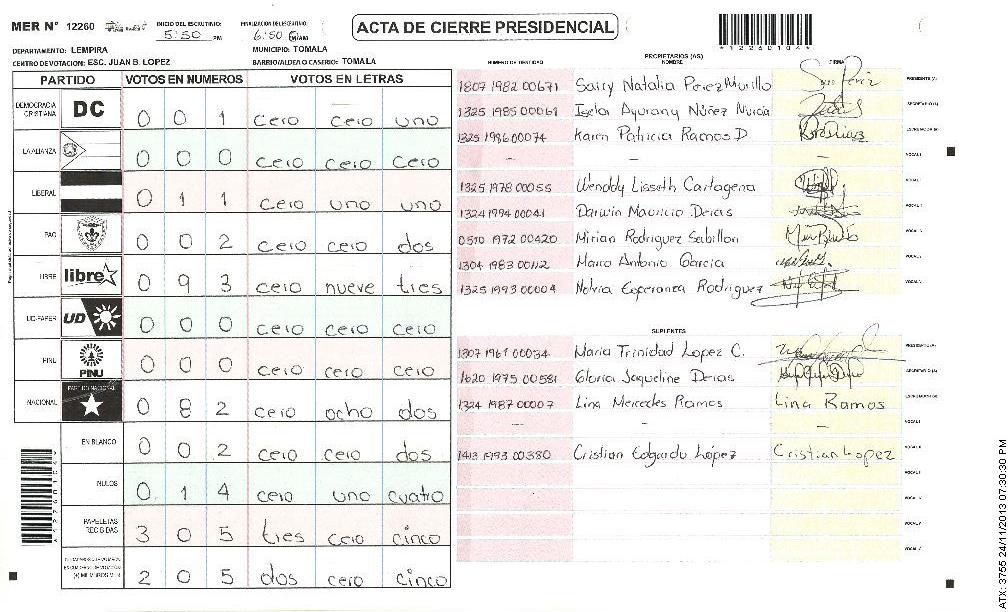 MER N° 12260 INICIO DEL ESCRUTINIO: 5:50 PM FINALIZACION DEL ESCRUTINIO: 6:50 PM ACTA DE CIERRE PRESIDENCIAL *12260104*
DEPARTAMENTO: LEMPIRA MUNICIPIO: TOMALA
CENTRO DE VOTACION: ESC. JUAN B. LOPEZ BARRIO/ALDEA O CASERIO: TOMALA
PARTIDO VOTOS EN NUMEROS VOTOS EN LETRAS
DEMOCRACIA CRISTIANA DC 0 0 1 cero cero uno
LA ALIANZA 0 0 0 cero cero cero
LIBERAL 0 1 1 cero uno uno
PAC 0 0 2 cero cero dos
LIBRE libre 0 9 3 cero nueve tres
UD-FAPER UD 0 0 0 cero cero cero
PINU PINU 0 0 0 cero cero cero
NACIONAL PARTIDO NACIONAL 0 8 2 cero ocho dos
EN BLANCO 0 0 2 cero cero dos
NULOS 0 1 4 cero uno cuatro
PAPELETAS RECIBIDAS 3 0 5 tres cero cinco
2 0 5 dos cero cinco
PROPIETARIOS (AS)
NUMERO DE IDENTIDAD NOMBRE FIRMA
1807 1982 00671 Sairy Natalia Perez Murillo PRESIDENTE (A)
1325 1985 00061 Isela Ayurany Núñez Murcia SECRETARIO (A)
1325 1986 00074 Karen Patricia Ramos D ESCRUTADOR (A)
– – – VOCAL I
1325 1978 00055 Wenddy Lisseth Cartagena
1324 1994 00041 Darwin Mauricio Deras
0510 1972 00420 Mirian Rodriguez Sabillon
1304 1983 00112 Marco Antonio Garcia
1325 1993 00004 Nolvia Esperanza Rodriguez
SUPLENTES
1307 1961 00034 Maria Trinidad Lopez C. PRESIDENTE (A)
1620 1975 00581 Gloria Jaqueline Deras SECRETARIO (A)
1324 1987 00007 Lina Mercedes Ramos Lina Ramos ESCRUTADOR (A)
– – – VOCAL I
1413 1993 00380 Cristian Edgardo López Cristian Lopez
ATX: 3755 24/11/2013 07:30:30 PM